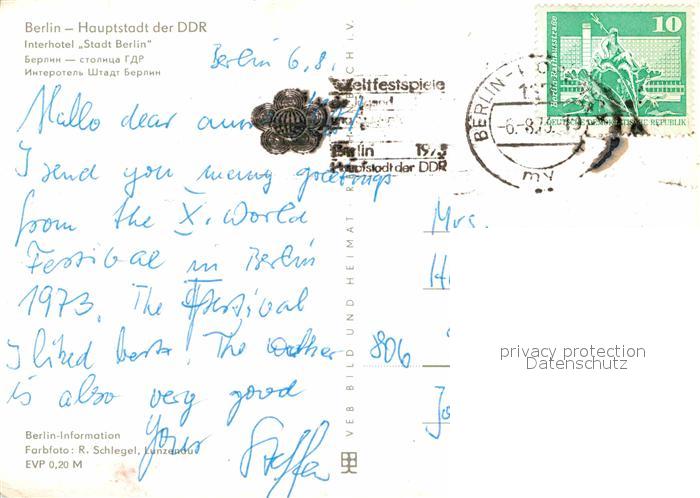 Berlin – Hauptstadt der DDR
Interhotel „Stadt Berlin“
Берлин — столица ГДР
Интеротель Штадт Берлин
Berlin 6.8.
Weltfestspiele
Berlin 1973
Hauptstadt der DDR
BERLIN
-6.-8.73
my
10
Berlin-Rathausstraße
DEUTSCHE DEMOKRATISCHE REPUBLIK
Hallo dear
I send you many greetings
from the X. World
Festival in Berlin
1973. The Festival
I liked best! The weather
is also very good
Your Steffen
Mrs.
H
806
Jo
VEB BILD UND HEIMAT
Berlin-Information
Farbfoto: R. Schlegel, Lunzenau
EVP 0,20 M
privacy protection
Datenschutz